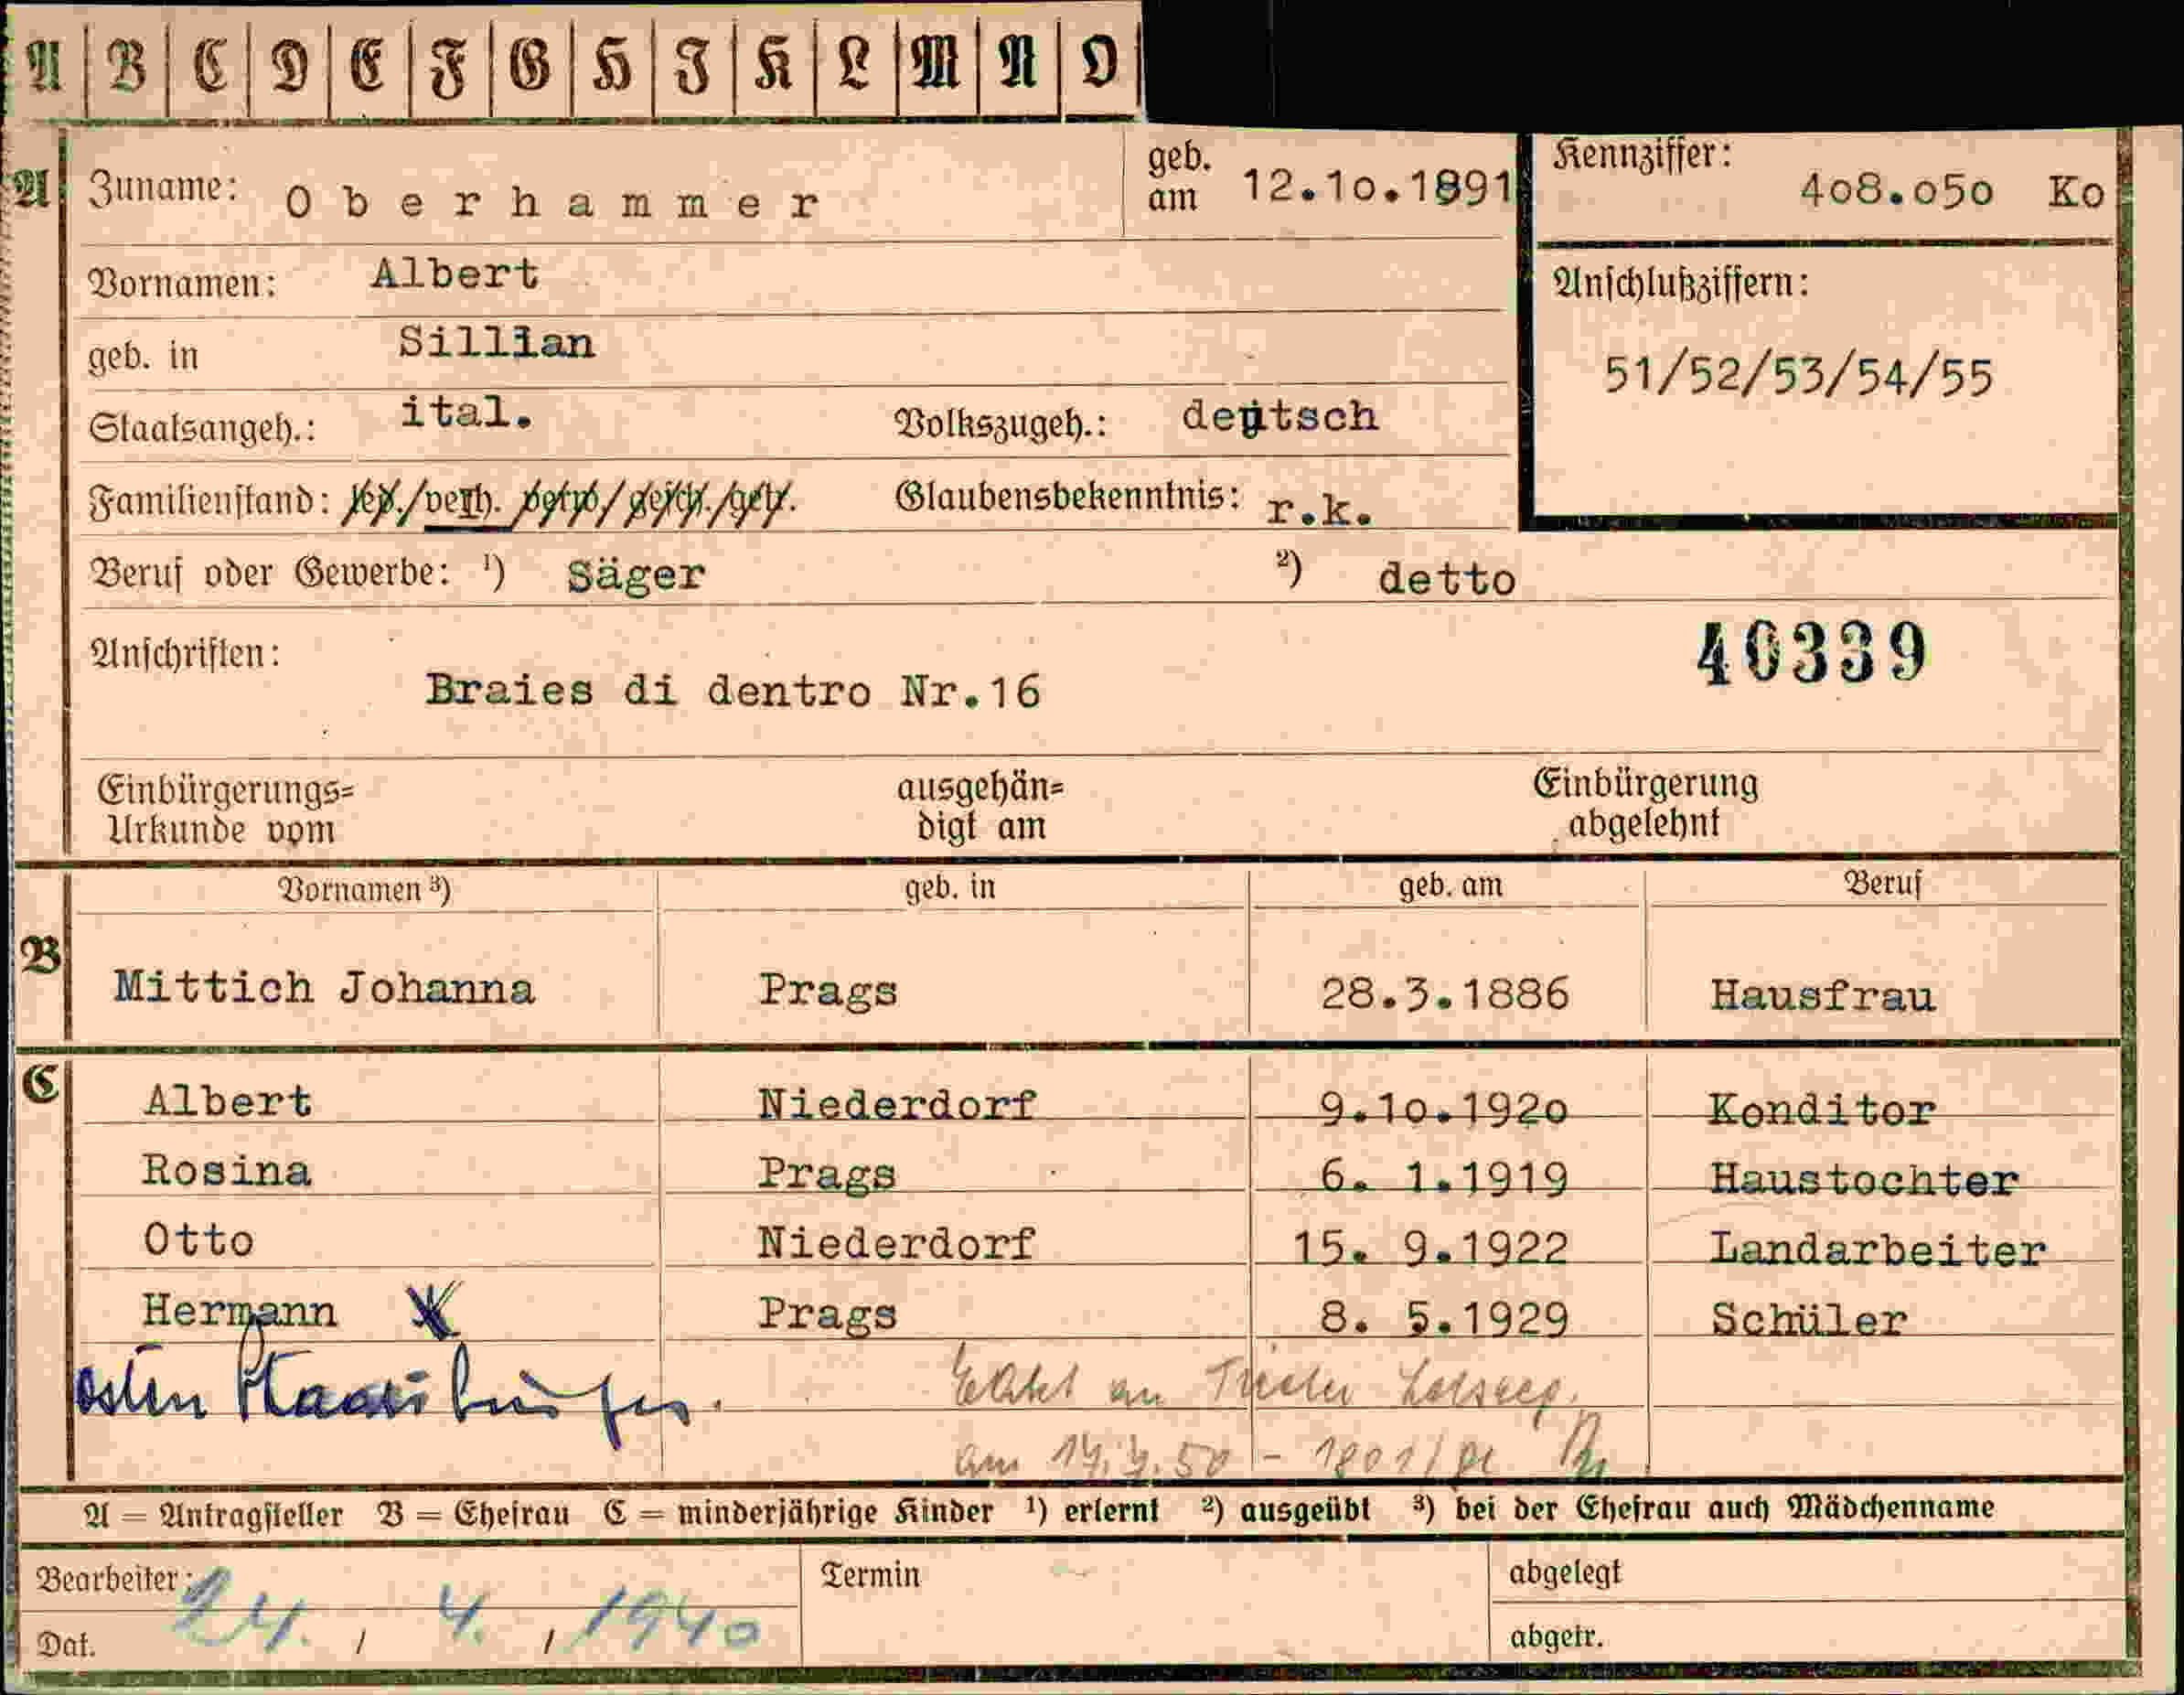 A B C D E F G H I K L M N O
A Zuname: Oberhammer geb. am 12.10.1891 Kennziffer: 408.050 Ko
Vornamen: Albert Anschlußziffern:
geb. in Sillian 51/52/53/54/55
Staatsangeh.: ital. Volkszugeh.: deutsch
Familienstand: led./verh. verw/gesch./getr. Glaubensbekenntnis: r.k.
Beruf oder Gewerbe: ¹) Säger ²) detto
Anschriften: 40339
Braies di dentro Nr.16
Einbürgerungs= ausgehän= Einbürgerung
Urkunde vom digt am abgelehnt
Vornamen ³) geb. in geb. am Beruf
B Mittich Johanna Prags 28.3.1886 Hausfrau
C Albert Niederdorf 9.10.1920 Konditor
Rosina Prags 6. 1.1919 Haustochter
Otto Niederdorf 15. 9.1922 Landarbeiter
Hermann Prags 8. 5.1929 Schüler
an
am
A = Antragsteller B = Ehefrau C = minderjährige Kinder ¹) erlernt ²) ausgeübt ³) bei der Ehefrau auch Mädchenname
Bearbeiter: Termin abgelegt
Dat. 24. / 4. / 1940 abgetr.